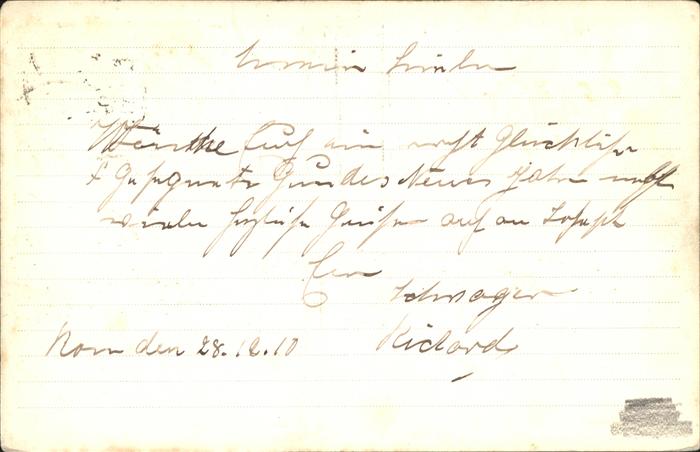 Meine Lieben
Wünsche Euch ein recht Glückliches
+ Gesegnetes Gesundes Neues Jahr nebst
vielen herzliche Grüße auch an Joseph
Euer
Schwager
Richard
den 28.12.10